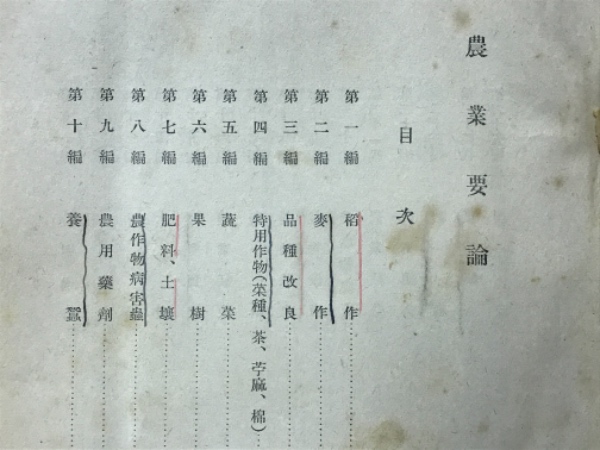 農業要論
目次
第一編 稻作
第二編 麥作
第三編 品種改良
第四編 特用作物(菜種、茶、苧麻、棉)
第五編 蔬菜
第六編 果樹
第七編 肥料、土壤
第八編 農作物病害蟲
第九編 農用藥劑
第十編 養蠶